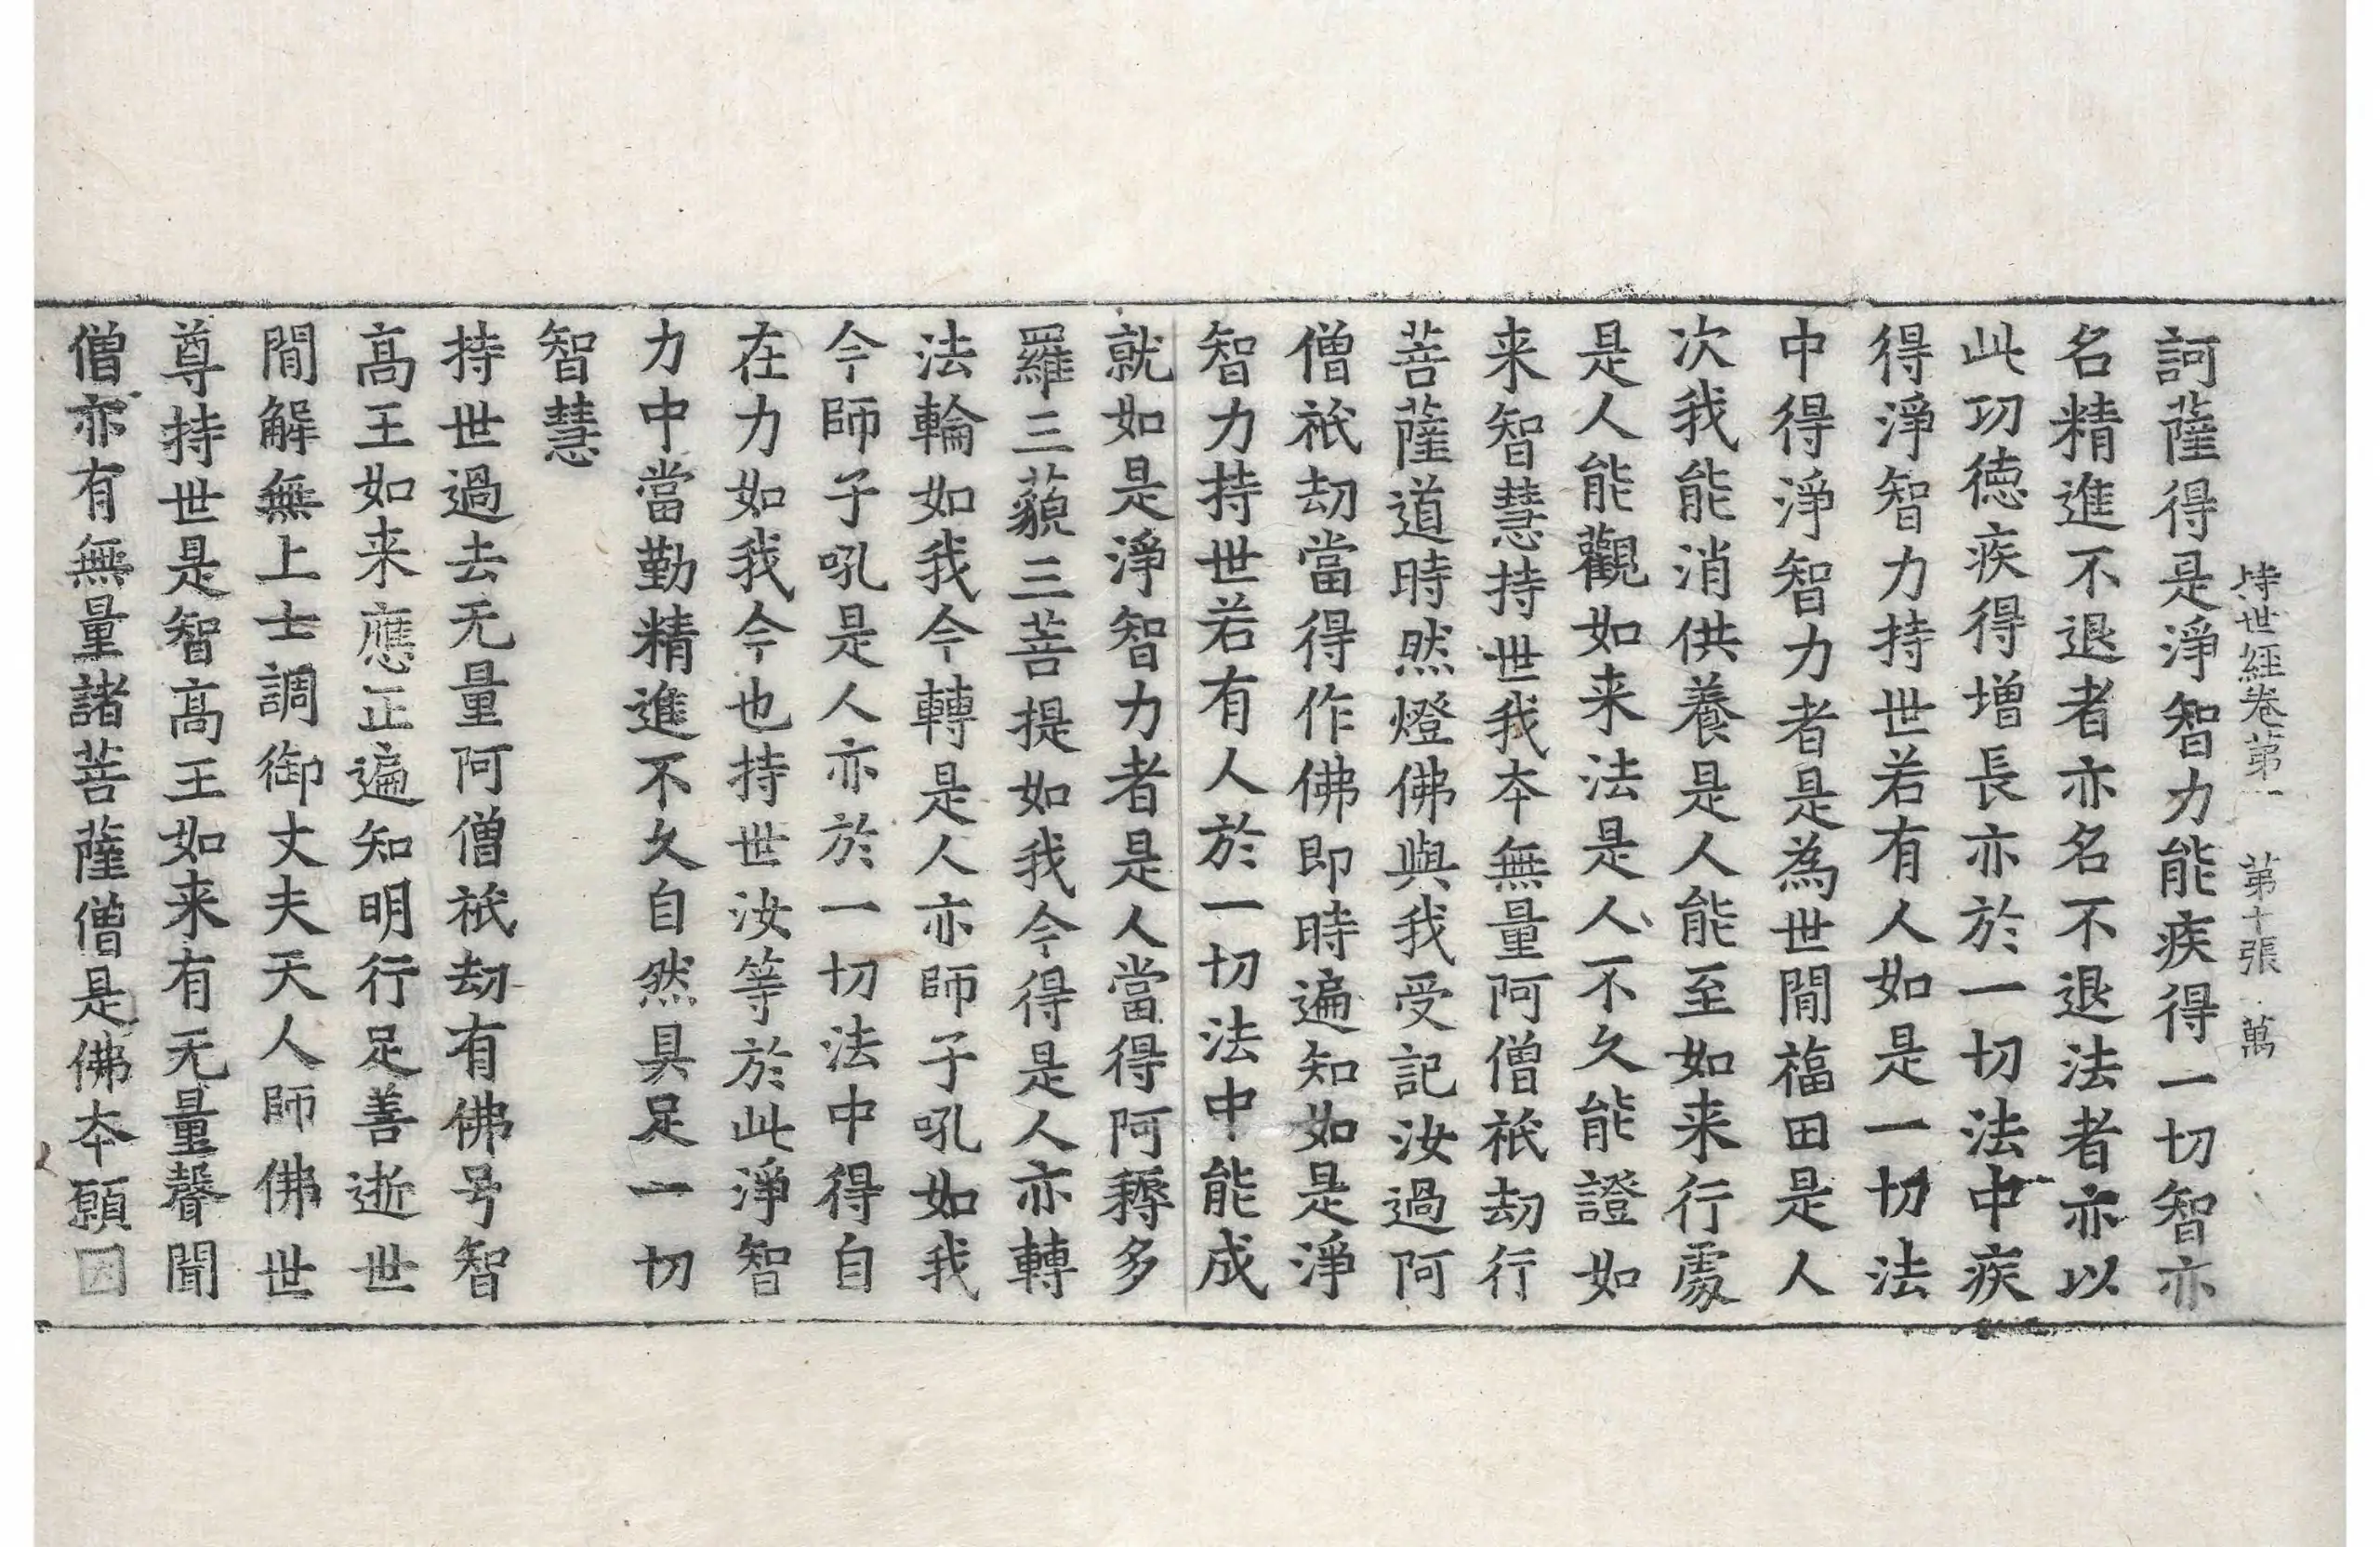 持世經卷第一 第十張 萬
訶薩得是淨智力能疾得一切智亦
名精進不退者亦名不退法者亦以
此功徳疾得增長亦於一切法中疾
得淨智力持世若有人如是一切法
中得淨智力者是為世閒福田是人
次我能消供養是人能至如来行處
是人能觀如来法是人不久能證如
来智慧持世我夲無量阿僧祇劫行
菩薩道時然燈佛與我受記汝過阿
僧祇劫當得作佛即時遍知如是淨
智力持世若有人於一切法中能成
就如是淨智力者是人當得阿耨多
羅三藐三菩提如我今得是人亦轉
法輪如我今轉是人亦師子吼如我
今師子吼是人亦於一切法中得自
在力如我今也持世汝等於此淨智
力中當勤精進不久自然具足一切
智慧
持世過去无量阿僧祇劫有佛号智
髙王如来應正遍知明行足善逝世
閒解無上士調御丈夫天人師佛世
尊持世是智髙王如来有无量聲聞
僧亦有無量諸菩薩僧是佛夲願因